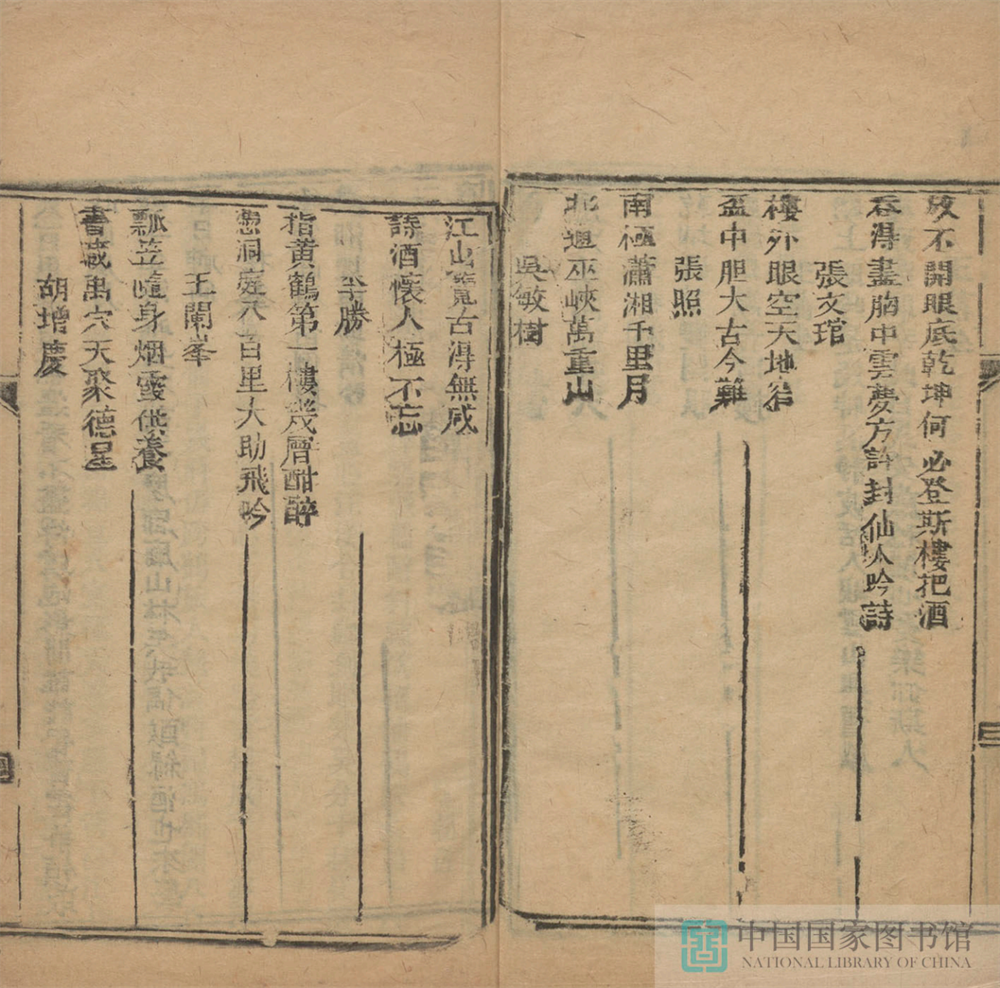 放不開眼底乾坤何必登斯樓把酒
吞得盡胸中雲夢方許對仙人吟詩
張文琯
樓外眼空天地窄
盃中胆大古今難
張照
南極瀟湘千里月
北通巫峽萬重山
吳敏樹
江山覽古淂無感
詩酒懷人極不忘
勝
指黃鶴第一樓幾層酣醉
洞庭八百里大助飛吟
王闌峯
瓢笠隨身烟霞供養
書藏禹穴天聚德星
胡增慶
中国国家图书馆
NATIONAL LIBRARY OF CHINA